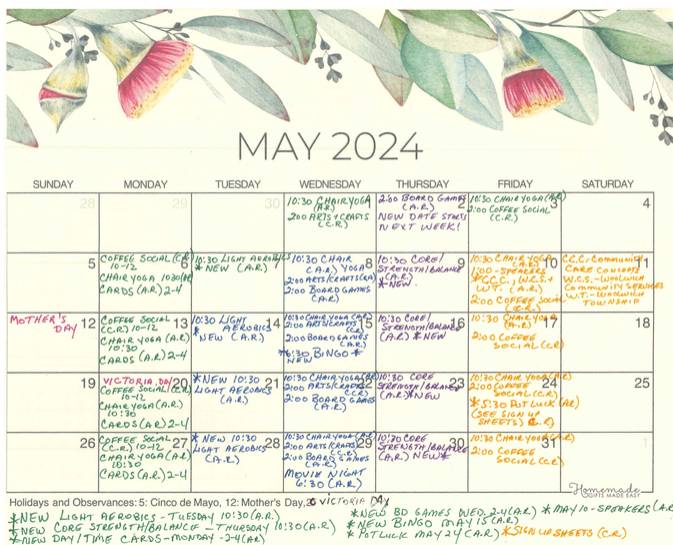 MAY 2024
SUNDAY MONDAY TUESDAY WEDNESDAY THURSDAY FRIDAY SATURDAY
28 29 30 1 2 3 4
10:30 CHAIR YOGA
(A.R.)
2:00 ARTS+CRAFTS
(C.R.)
2:00 BOARD GAMES
(A.R.)
NEW DATE STARTS
NEXT WEEK!
10:30 CHAIR YOGA (A.R.)
2:00 COFFEE SOCIAL
(C.R.)
5 6 7 8 9 10 11
COFFEE SOCIAL (C.R.)
10-12
CHAIR YOGA 10:30 (A.R.)
CARDS (A.R.) 2-4
10:30 LIGHT AEROBICS
* NEW (A.R.)
10:30 CHAIR
(A.R.) YOGA
2:00 ARTS+CRAFTS (C.R.)
2:00 BOARD GAMES
(A.R.)
10:30 CORE/
STRENGTH/BALANCE
(A.R.)
* NEW
10:30 CHAIR YOGA
(A.R.)
1:00 - SPEAKERS
*C.C.C., W.C.S.+
W.T. (A.R.)
2:00 COFFEE SOCIAL
(C.R.)
C.C.C. - COMMUNITY
CARE CONCEPTS
W.C.S. - WOOLWICH
COMMUNITY SERVICES
W.T. - WOOLWICH
TOWNSHIP
12 13 14 15 16 17 18
MOTHER'S
DAY
COFFEE SOCIAL
(C.R.) 10-12
CHAIR YOGA (A.R.)
10:30
CARDS (A.R.) 2-4
10:30 LIGHT
* AEROBICS
NEW (A.R.)
10:30 CHAIR YOGA (A.R.)
2:00 ARTS/CRAFTS
(C.R.)
2:00 BOARD GAMES
(A.R.)
*6:30 BINGO *
NEW
10:30 CORE/
STRENGTH/BALANCE
(A.R.) *NEW
10:30 CHAIR YOGA
(A.R.)
2:00 COFFEE
SOCIAL (C.R.)
19 20 21 22 23 24 25
VICTORIA DAY
COFFEE SOCIAL (C.R.)
10-12
CHAIR YOGA (A.R.)
10:30
CARDS (A.R.) 2-4
*NEW 10:30
LIGHT AEROBICS
(A.R.)
10:30 CHAIR YOGA (A.R.)
2:00 ARTS/CRAFTS
(C.R.)
2:00 BOARD GAMES
(A.R.)
10:30 CORE
STRENGTH/BALANCE
(A.R.) *NEW
10:30 CHAIR YOGA (A.R.)
2:00 COFFEE
SOCIAL (C.R.)
* 5:30 POTLUCK (A.R.)
(SEE SIGN UP
SHEETS) C.R.
26 27 28 29 30 31 1
COFFEE SOCIAL
(C.R.) 10-12
CHAIR YOGA (A.R.)
10:30
CARDS (A.R.) 2-4
* NEW 10:30
LIGHT AEROBICS
(A.R.)
10:30 CHAIR YOGA (A.R.)
2:00 ARTS/CRAFTS
(C.R.)
2:00 BOARD GAMES
(A.R.)
MOVIE NIGHT
6:30 (A.R.)
10:30 CORE
STRENGTH/BALANCE
(A.R.) NEW*
10:30 CHAIR YOGA (A.R.)
2:00 COFFEE
SOCIAL (C.R.)
Homemade
GIFTS MADE EASY
Holidays and Observances: 5: Cinco de Mayo, 12: Mother's Day, VICTORIA DAY
*NEW LIGHT AEROBICS - TUESDAY 10:30 (A.R.)
*NEW CORE STRENGTH/BALANCE - THURSDAY 10:30 (A.R.)
*NEW DAY/TIME CARDS - MONDAY - 2-4 (A.R.)
*NEW BD GAMES WED. 2-4 (A.R.)
*NEW BINGO MAY 15 (A.R.)
*POTLUCK MAY 24 (A.R.)
*MAY 10 - SPEAKERS (A.R.)
*SIGN UP SHEETS (C.R.)